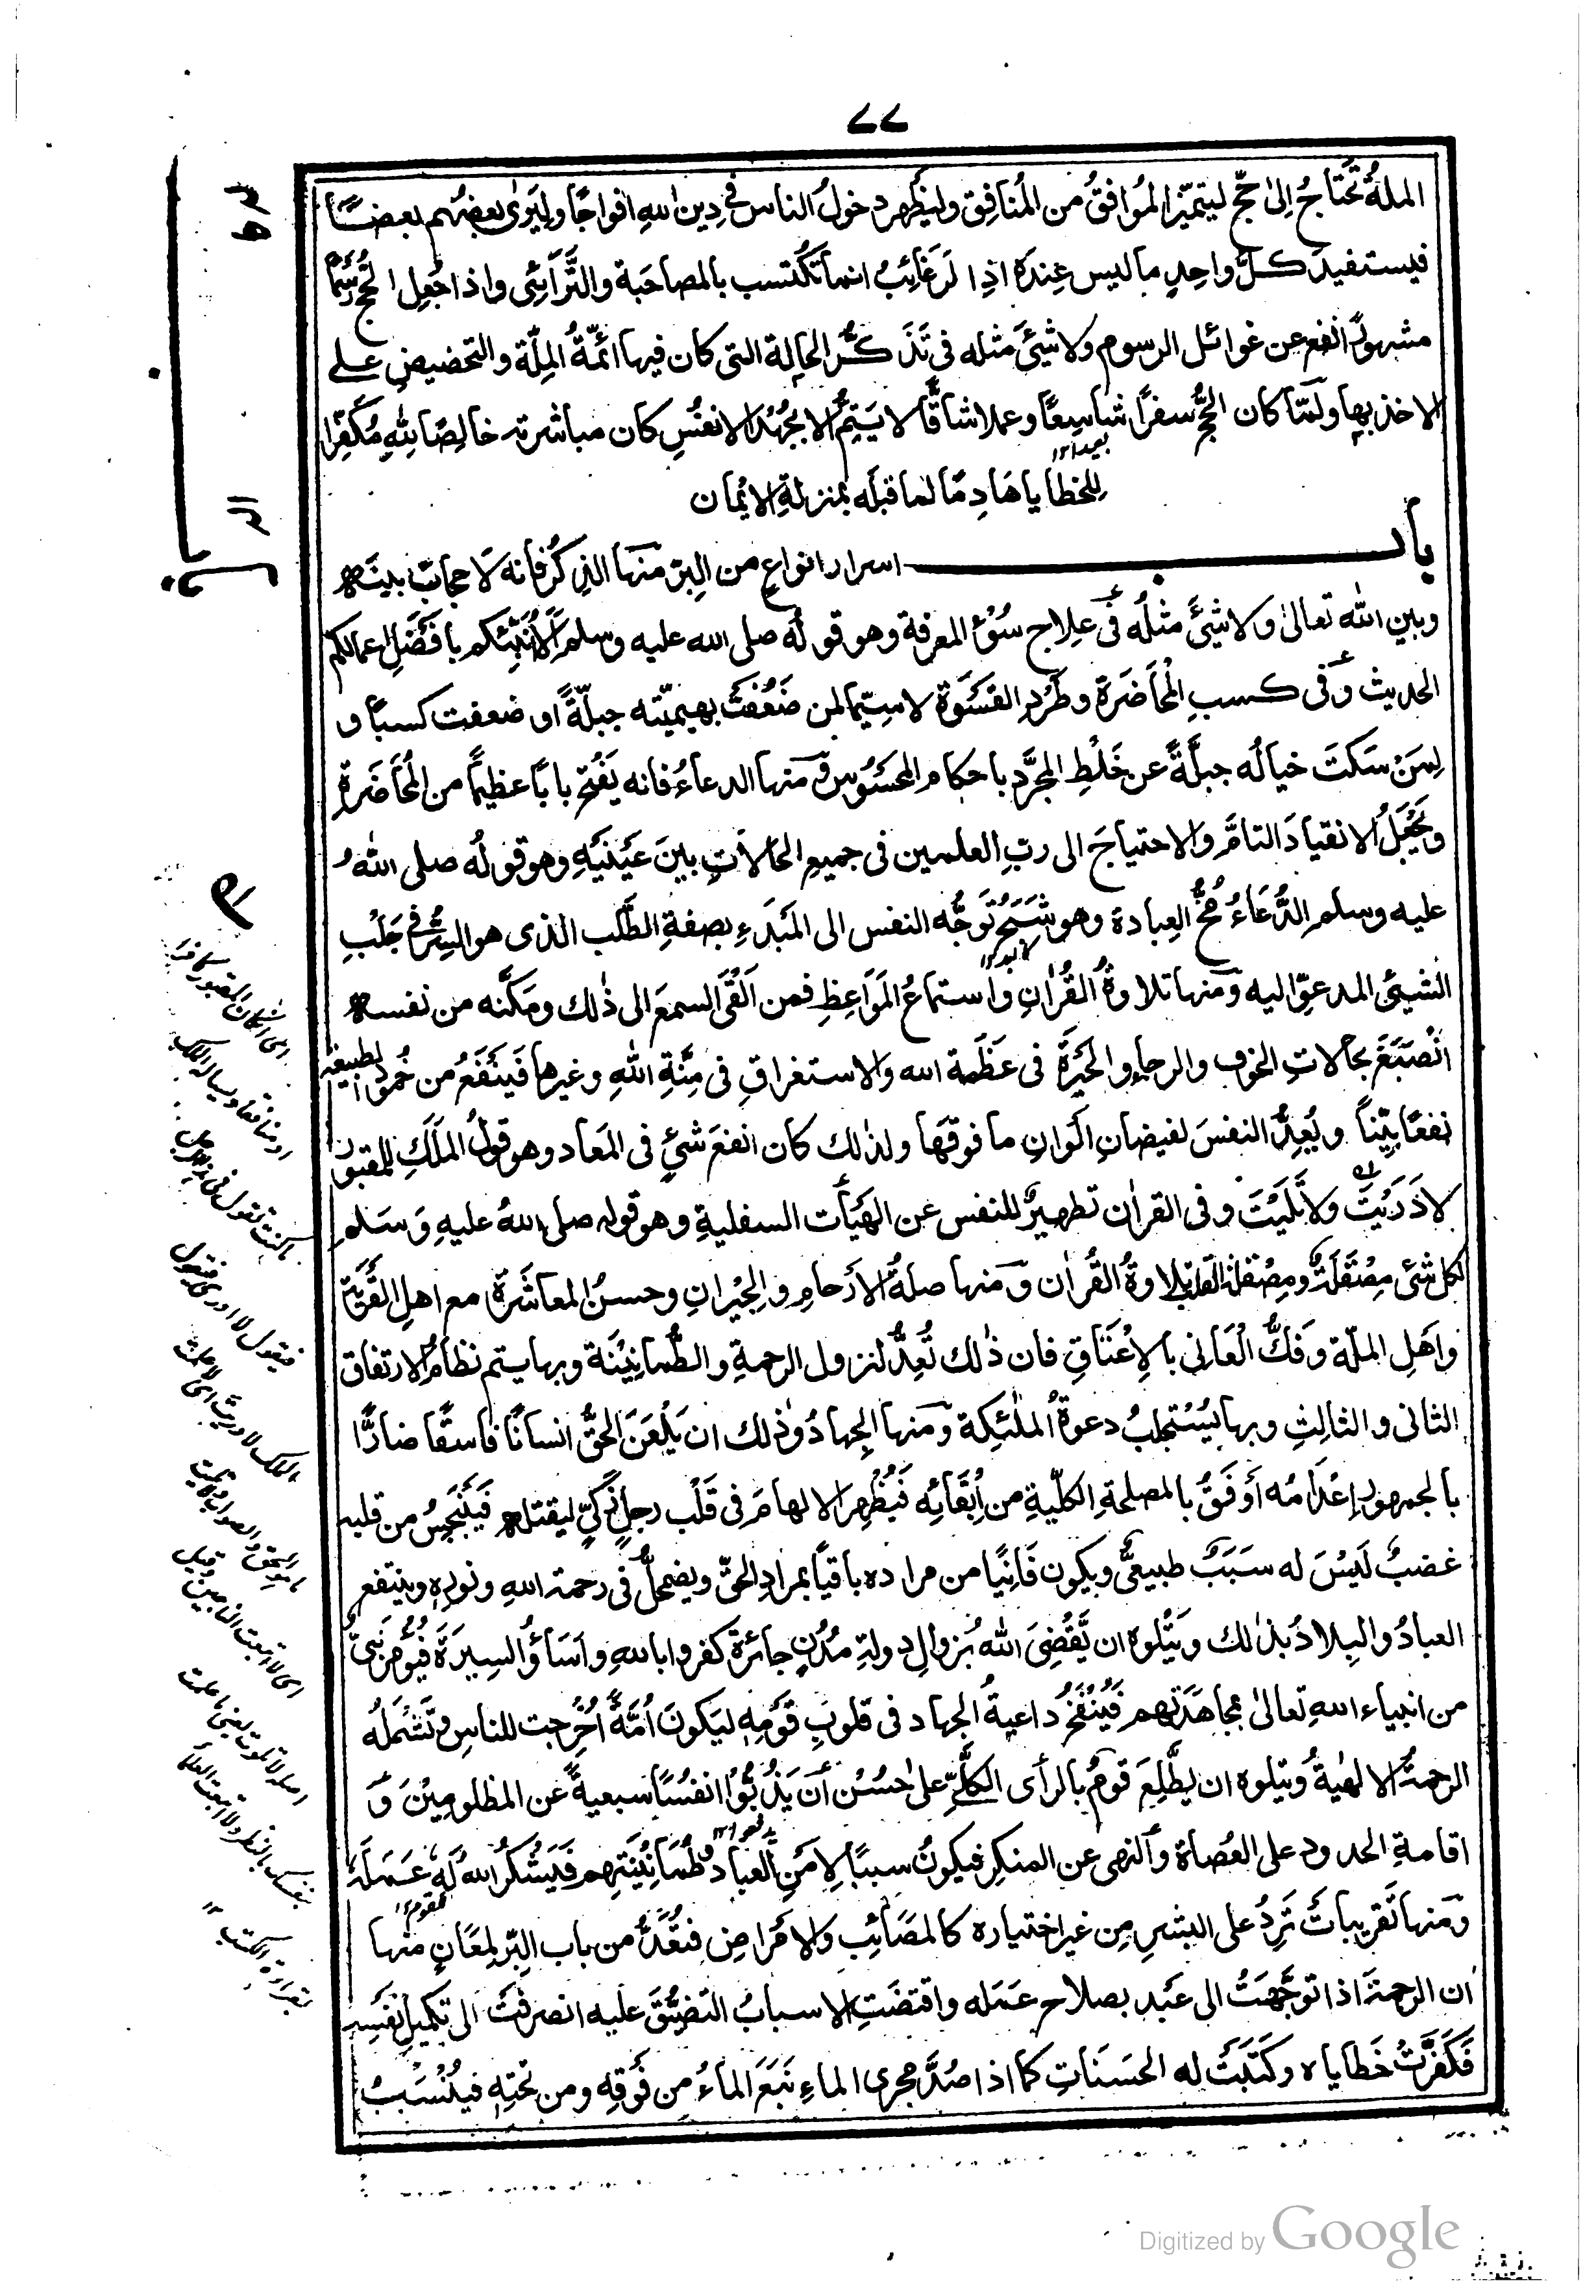 ٧٧
الملةُ تَحتاجُ اِلىٰ حَجٍّ ليتميّزا لمُوَافِقُ من المُنَافِقِ وليَظْهر دخولُ الناس فِي دِين اللهِ افواجًا ولِيَرىٰ بعضُهم بعضًا
فيستفيدَ كلُّ واحِدٍ ما ليس عِندَهٗ اذِ الرَغَائِبُ انما تَكْتسب بالمصاحَبة والتَّرَائِى واذا جُعِل الحَجُّ رَسْمًا
مشهورًا نفع عن غوائل الرسوم ولا شئَ مثله فى تَذَكُّرا لحالة التى كان فيها ائمّةُ المِلّة والتحضيضِ على
الاخذ بها ولمّا كان الحَجُّ سفرًا شاسِعًا وعملا شاقًّا لا يَتِمُّ الا بجُهْدِ الانفُسِ كان مباشرته خالِصًا للهِ مُكَفِّرًا
بعيدا ١٢
لِلخطايا هَادِمًا لما قبلَه بمنزلةِ الايمان
باب اسرار انواعٍ من البِرّ منهَا الذِكرُ فانه لا حجابَ بينهٗ
وبين الله تعالىٰ ولا شئَ مثلُه فى عِلاج سُوْءِ المعرفة وهو قولُه صلى الله عليه وسلم اَلَا اُنَبِّئُكم بافضَلِ اعمالكم
الحديث وفى كسبِ المُحَاضَرَة وطَرْدِ القَسْوَة لا سيّما لمن ضَعُفَتْ بهيميّته جبلّةً او ضعفت كسبًا و
لِمَنْ سَكتَ خيالُه جبلَّةً عن خَلْطِ المجرَّد باحكام المحسُوس ومنها الدعاءُ فانه يَفْتح بابًا عظيمًا من المُحَاضَرَة
ويَجْعَلُ الانقيادَ التامَّ والاحتياجَ الى ربِ العلمين فى جميعِ الحالاتِ بينَ عَيْنَيهِ وهو قولُه صلى اللهُ
عليه وسلم الدُّعَاءُ مُخُّ العِبادة وهو شَبَحُ تَوَجُّه النفس الى المَبْدَءِ بصفةِ الطَّلَب الذى هو السِرُّ فى جَلْبِ
الشيئ المدعوِّ اليه ومنها تلاوةُ القُرْاٰن واستماعُ المَوَاعِظِ فمن اَلْقَى السمعَ الى ذٰلك ومَكّنَه من نفسهٖ
انْصَبَغَ بحالاتِ الخوف والرجاءِ والحَيْرَةِ فى عَظَمة الله والاستغراقِ فى مِنَّةِ اللهِ وغيرها فَيَنْفَعُ من خُمودِ الطبيعةِ
نفعًا بيّنًا ويُعِدُّ النفسَ لفيضانِ الَوانِ ما فوقهَا ولذٰلك كان انفعَ شئٍ فى المَعاد وهو قولُ المَلَكِ للمقبور
لا دَرَيْتَ ولا تَلَيْتَ وفى القراٰن تطهيرٌ للنفس عن الهَيْاٰت السفليةِ وهو قوله صلى اللهُ عليهِ وَسَلم
لكل شئ مِصْقَلَةٌ ومِصْقلة القلب تلاوةُ القُراٰن ومنها صلةُ الارْحامِ والجِيْرانِ وحسنُ المعاشَرَة مع اهلِ القَرْيَة
واَهَلِ الملّة وفَكُّ الْعَانِى بالاِعْتَاقِ فان ذٰلك تُعِدُّ لنزول الرحمةِ والطُّمانِيْنَة وبها يتم نظامُ الارتفاق
الثانى والثالِثِ وبها يُسْتَجلبُ دعوةُ الملٰئِكة ومنها الجِهادُ وذٰلك ان يَلْعَنَ الحَقُّ انسانًا فاسقًا ضارًّا
بالجمهور اِعْدَامُه اَوفَقُ بالمصلحةِ الكلّيةِ من اِبْقَائه فَيَظْهر الالهامَ فى قَلْب رجلٍ زكيٍّ ليقتلهٗ فَيَنْبَجِسُ من قلبه
غضبٌ لَيْسَ له سَبَبٌ طبيعىٌّ ويكون فَانِيًا من مراده باقيًا بمرادِ الحقّ ويضمحلُّ فى رحمة اللهِ ونورِهٖ وينتفع
العبادُ والبِلادُ بذٰلك ويَتْلوه ان يَّقْضِىَ اللهُ بزوالِ دولةِ مُدُنٍ جائرة كفروا باللهِ واَسَاؤُا السِيرَةَ فيُؤْمَر نَبىٌّ
من انبياء اللهِ تعالىٰ بمجاهَدَتهم فَيُنْفَخُ داعيةُ الجهاد فى قلوبِ قَوْمِهٖ ليَكونَ اُمَّةً اُخْرِجت للناس وتَشْمَلُه
الرحمةُ الالٰهيةُ ويتلوه ان يطَّلِعَ قومٌ بالرأى الكلِّيِّ على حُسْن اَن يَذُبُّوا انفُسًا سبعيةً عن المظلومِيْنَ وَ
يدفعوا ١٢
اقامةِ الحدود على العُصاة والنهى عن المنكِر فيكونُ سببًا لِاَمْنِ العبادِ وطُمَانِيْنَتِهم فَيَشْكُرُ اللهُ لَهٗ عَمَلَهٗ
للقوم ١٢
ومنها تَقريباتٌ تَرِدُ على البشرِ مِن غير اختياره كالمصَائِب والامْراضِ فتُعَدُّ من باب البِرّ لِمَعَانٍ منها
ان الرحمةَ اذا توجَّهَتْ الى عَبْد بصلاح عَمَله واقتضَتِ الاسبابُ التضيُّقَ عليه انصرفَتْ الى تكميلِ نَفسِه
فَكَفّرَتْ خَطَاياه وكَتَبَتْ له الحسَنَاتِ كما اذا صُدَّ مجرى الماءِ نَبَعَ الماءُ من فَوْقِهٖ ومن تحتِهٖ فيُنْسَبُ
باب
Digitized by Google